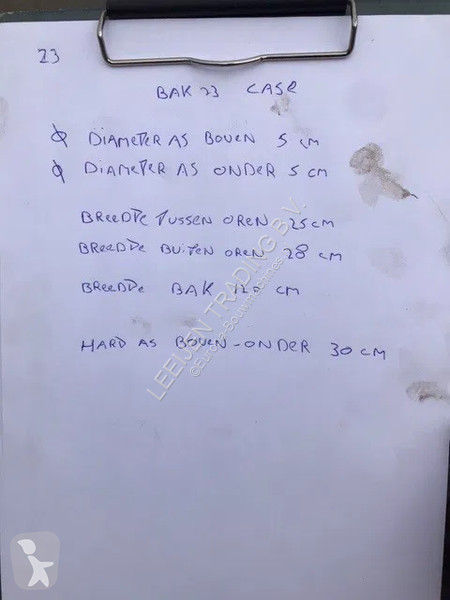 23
BAK 23 CASE
Ø DIAMETER AS BOVEN 5 cm
Ø DIAMETER AS ONDER 5 cm
BREEDTE TUSSEN OREN 25 cm
BREEDTE BUITEN OREN 28 cm
BREEDTE BAK 120 cm
HARD AS BOVEN - ONDER 30 CM
LEEIJEN TRADING B.V.